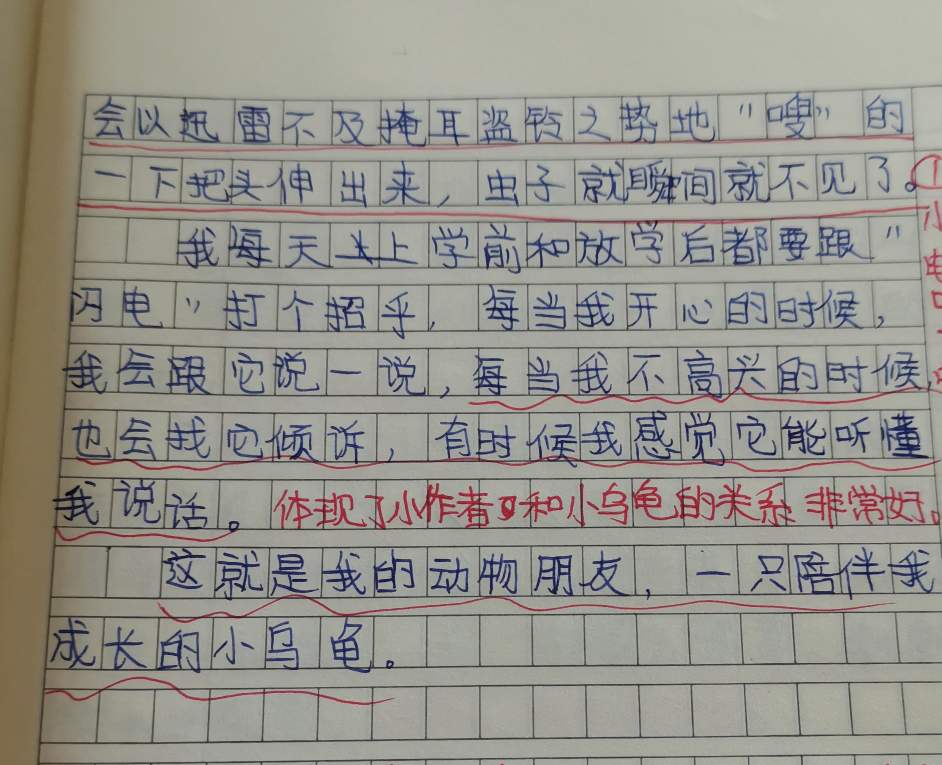 会以迅雷不及掩耳盗铃之势地“嗖”的
一下把头伸出来，虫子就瞬间就不见了。①
我每天上学前和放学后都要跟“
闪电”打个招乎，每当我开心的时候，
我会跟它说一说，每当我不高兴的时候，
也会找它倾诉，有时候我感觉它能听懂
我说话。体现了小作者和小乌龟的关系非常好。
这就是我的动物朋友，一只陪伴我
成长的小乌龟。
小
电